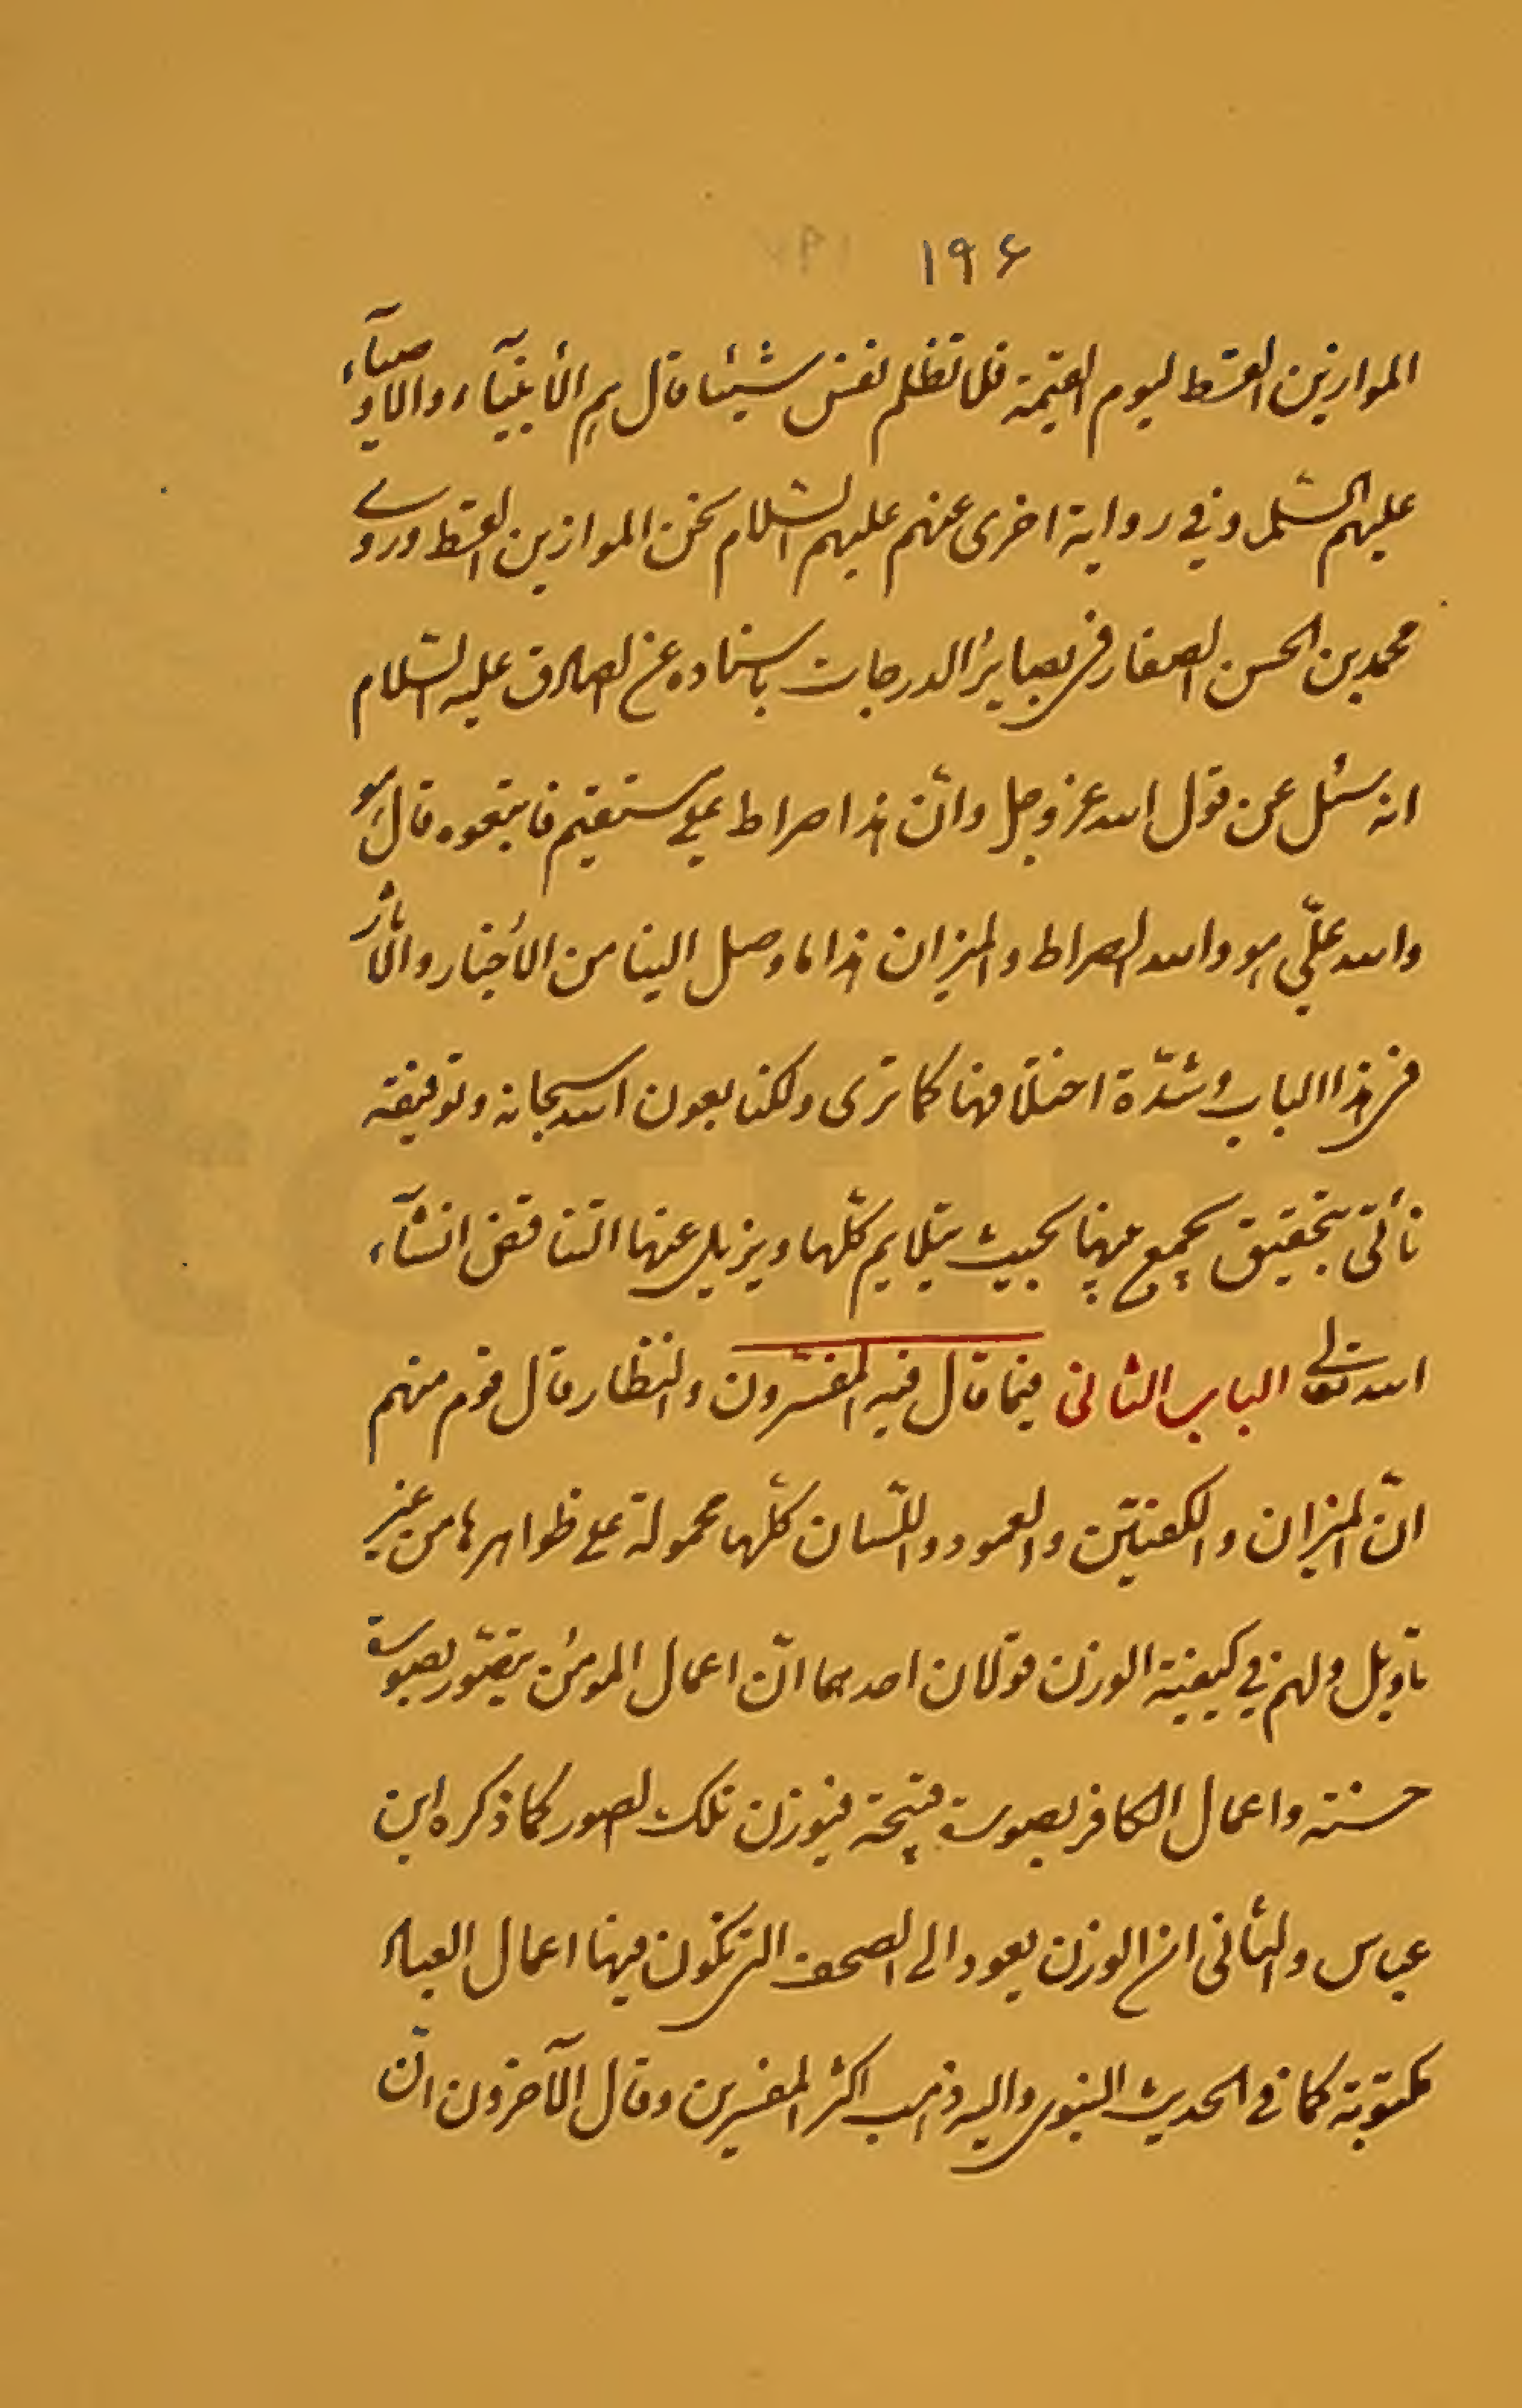 ۱۹۶
الموازين القسط ليوم القيمة فلا تظلم نفس شيئا قال هم الأنبيآء والاوصيآء
عليهم السلم و في رواية اخرى عنهم عليهم السّلام نحن الموازين القسط وروى
محمد بن الحسن الصفار في بصاير الدرجات باسناده عن الصادق عليه السّلام
انه سئل عن قول الله عز وجل وانّ هذا صراط علي مستقيم فاتبعوه قال هو
والله علّي هو والله الصراط والميزان هذا ما وصل الينا من الأخبار والآثار
في هذا الباب و شدّة اختلافها كما ترى ولكنا بعون الله سبحانه وتوفيقه
نأتى بتحقيق يجمع بينها بحيث يتلايم كلّها ويزيل عنها التناقض انشآء
الله تعالى الباب الثانى فيما قال فيه المفسّرون والنظار قال قوم منهم
انّ الميزان والكفتين والعمود واللّسان كلّها محمولة على ظواهرها من غير
تأويل ولهم في كيفية الوزن قولان احدهما انّ اعمال المؤمن يتصّور بصورة
حسنة واعمال الكافر بصورة قبيحة فيوزن تلك الصور كما ذكره ابن
عباس والثانى ان الوزن يعود الى الصحف التي تكون فيها اعمال العباد
مكتوبة كما في الحديث النبوى واليه ذهب اكثر المفسرين وقال الآخرون انّ